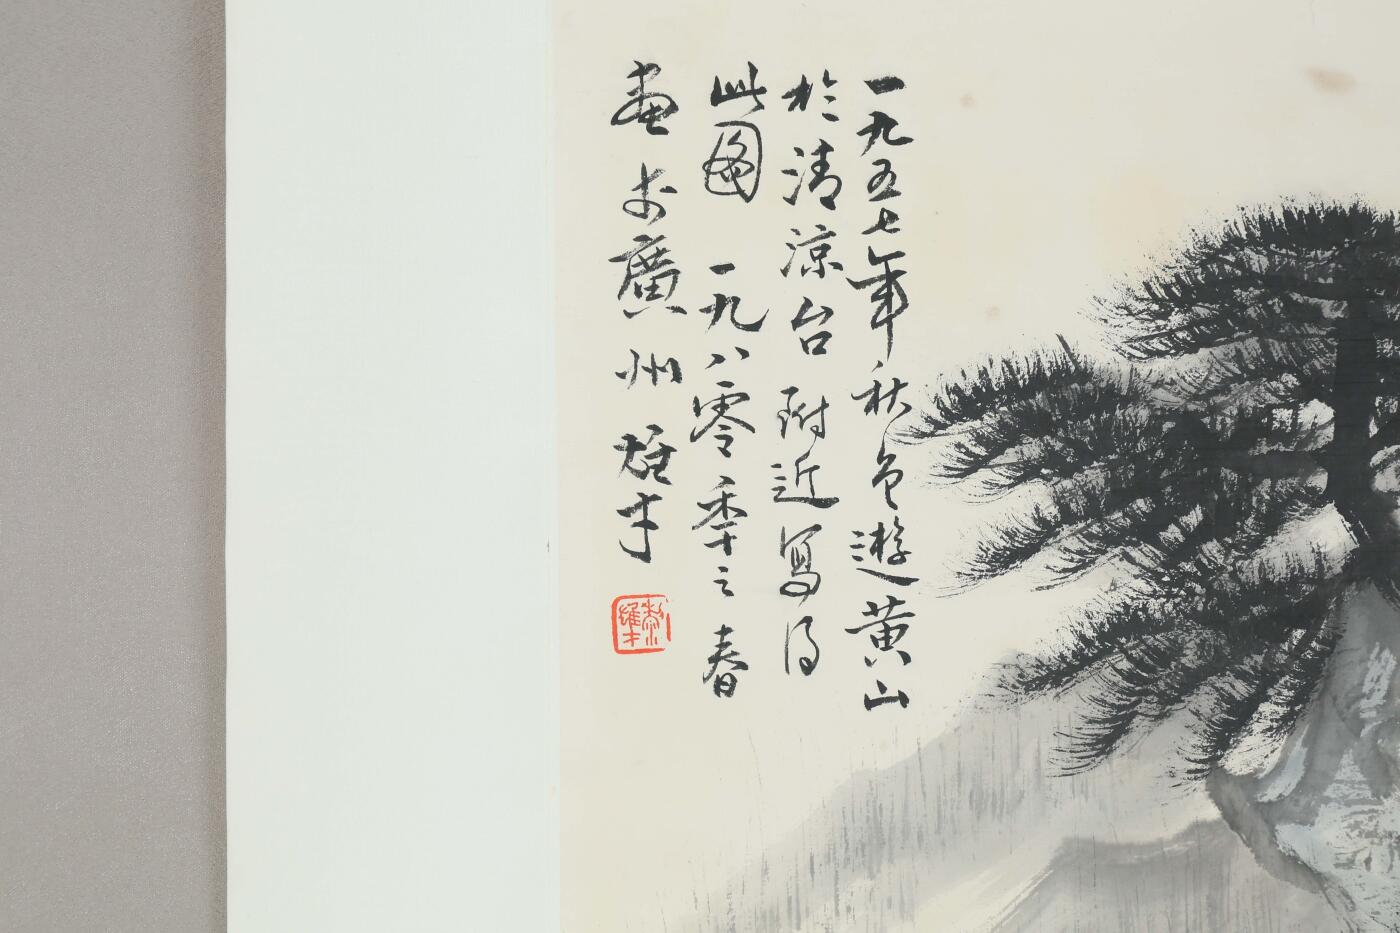 一九五七年秋色遊黄山
於清凉台附近写得
此圖 一九八零年之春
畫於廣州 雄才
黎雄才